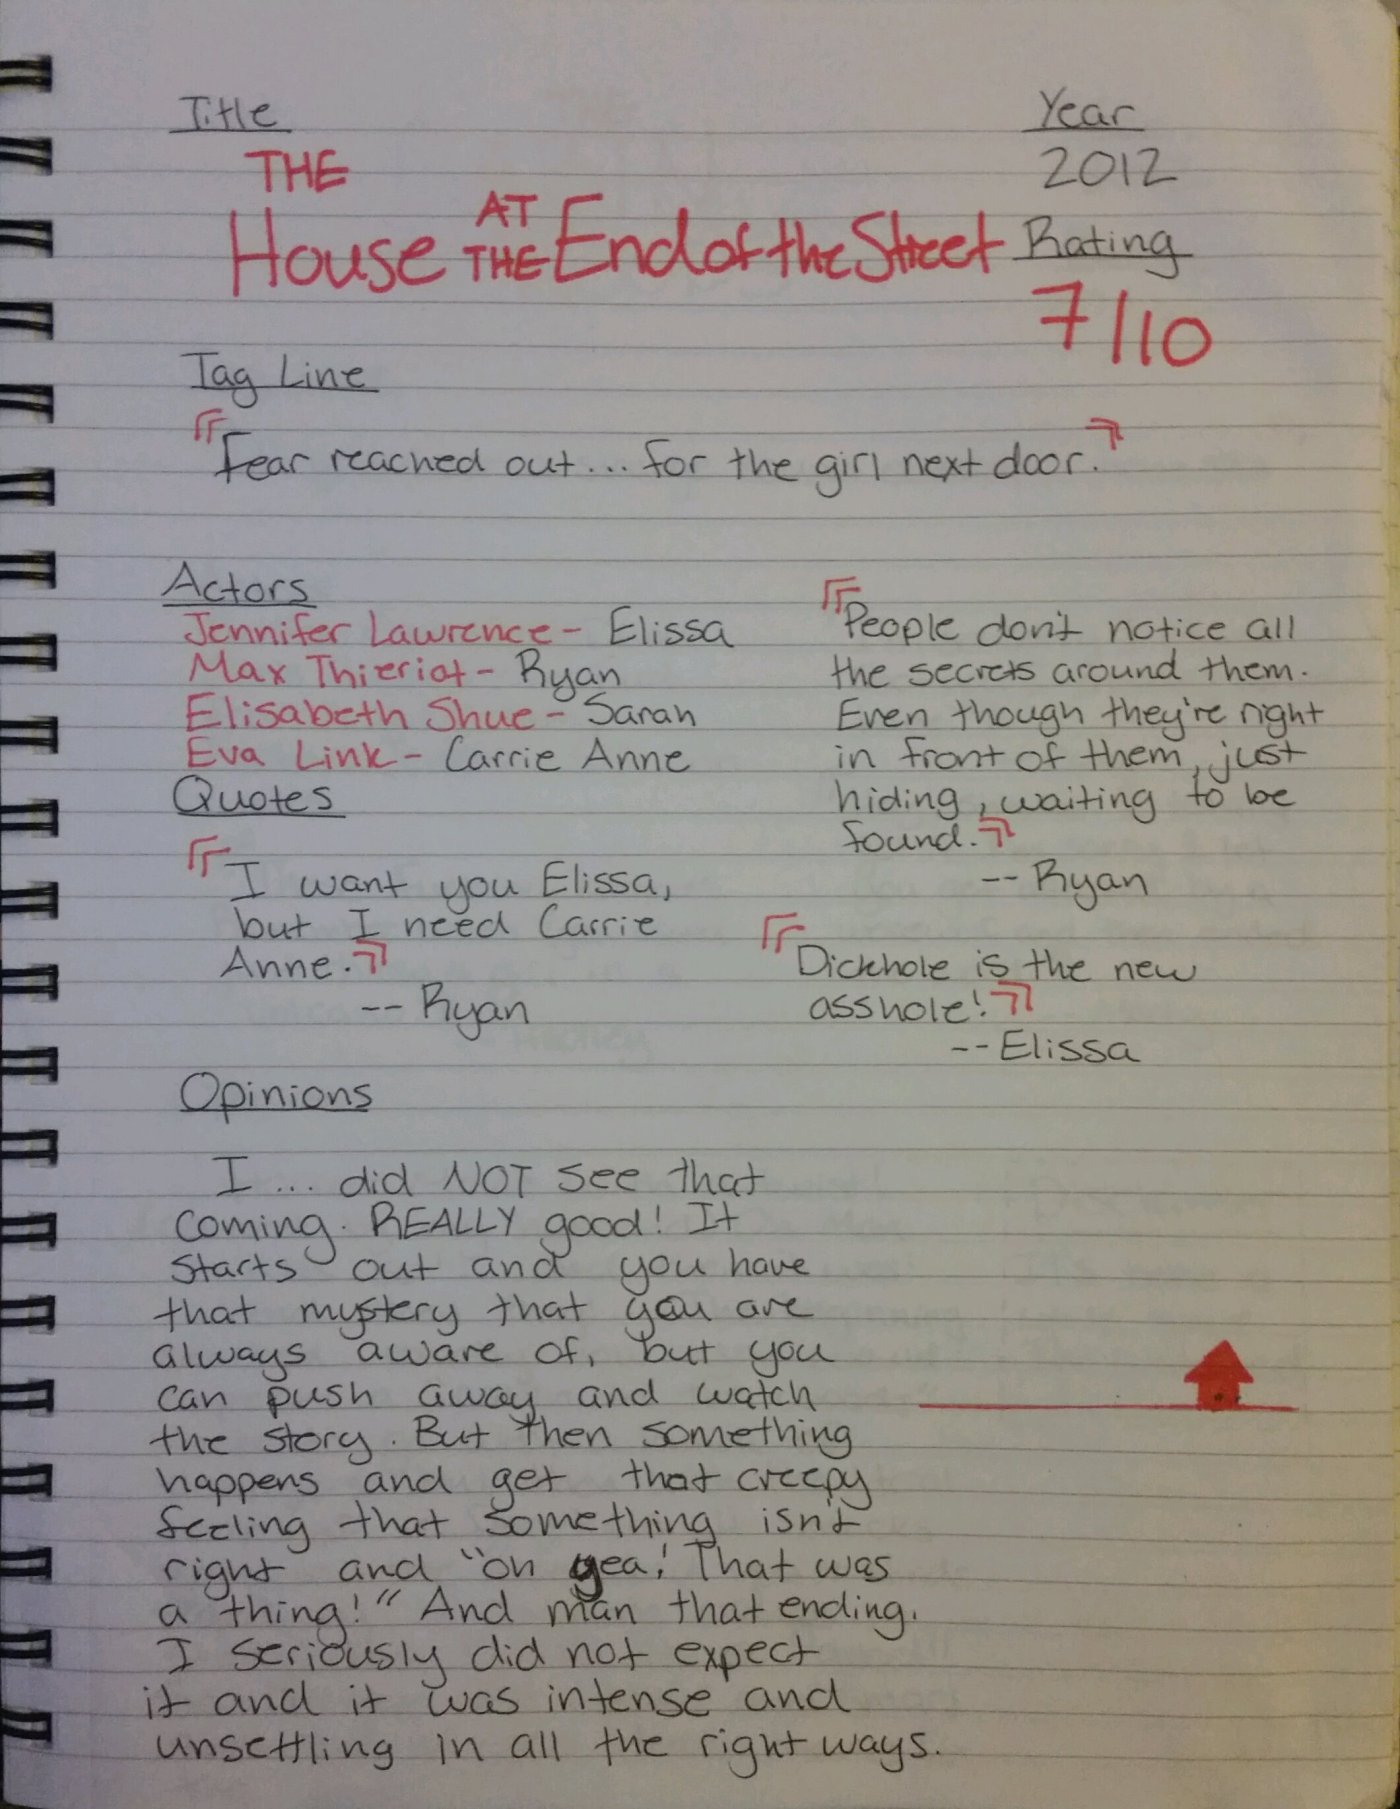 Title
THE
House AT THE End of the Street
Year
2012
Rating
7/10
Tag Line
"Fear reached out... for the girl next door."
Actors
Jennifer Lawrence - Elissa
Max Thieriot - Ryan
Elisabeth Shue - Sarah
Eva Link - Carrie Anne
Quotes
"I want you Elissa,
but I need Carrie
Anne."
-- Ryan
"People don't notice all
the secrets around them.
Even though they're right
in front of them, just
hiding, waiting to be
found."
-- Ryan
"Dickhole is the new
asshole!"
-- Elissa
Opinions
I... did NOT see that
coming. REALLY good! It
starts out and you have
that mystery that you are
always aware of, but you
can push away and watch
the story. But then something
happens and get that creepy
feeling that something isn't
right and "oh yea! That was
a thing!" And man that ending.
I seriously did not expect
it and it was intense and
unsettling in all the right ways.